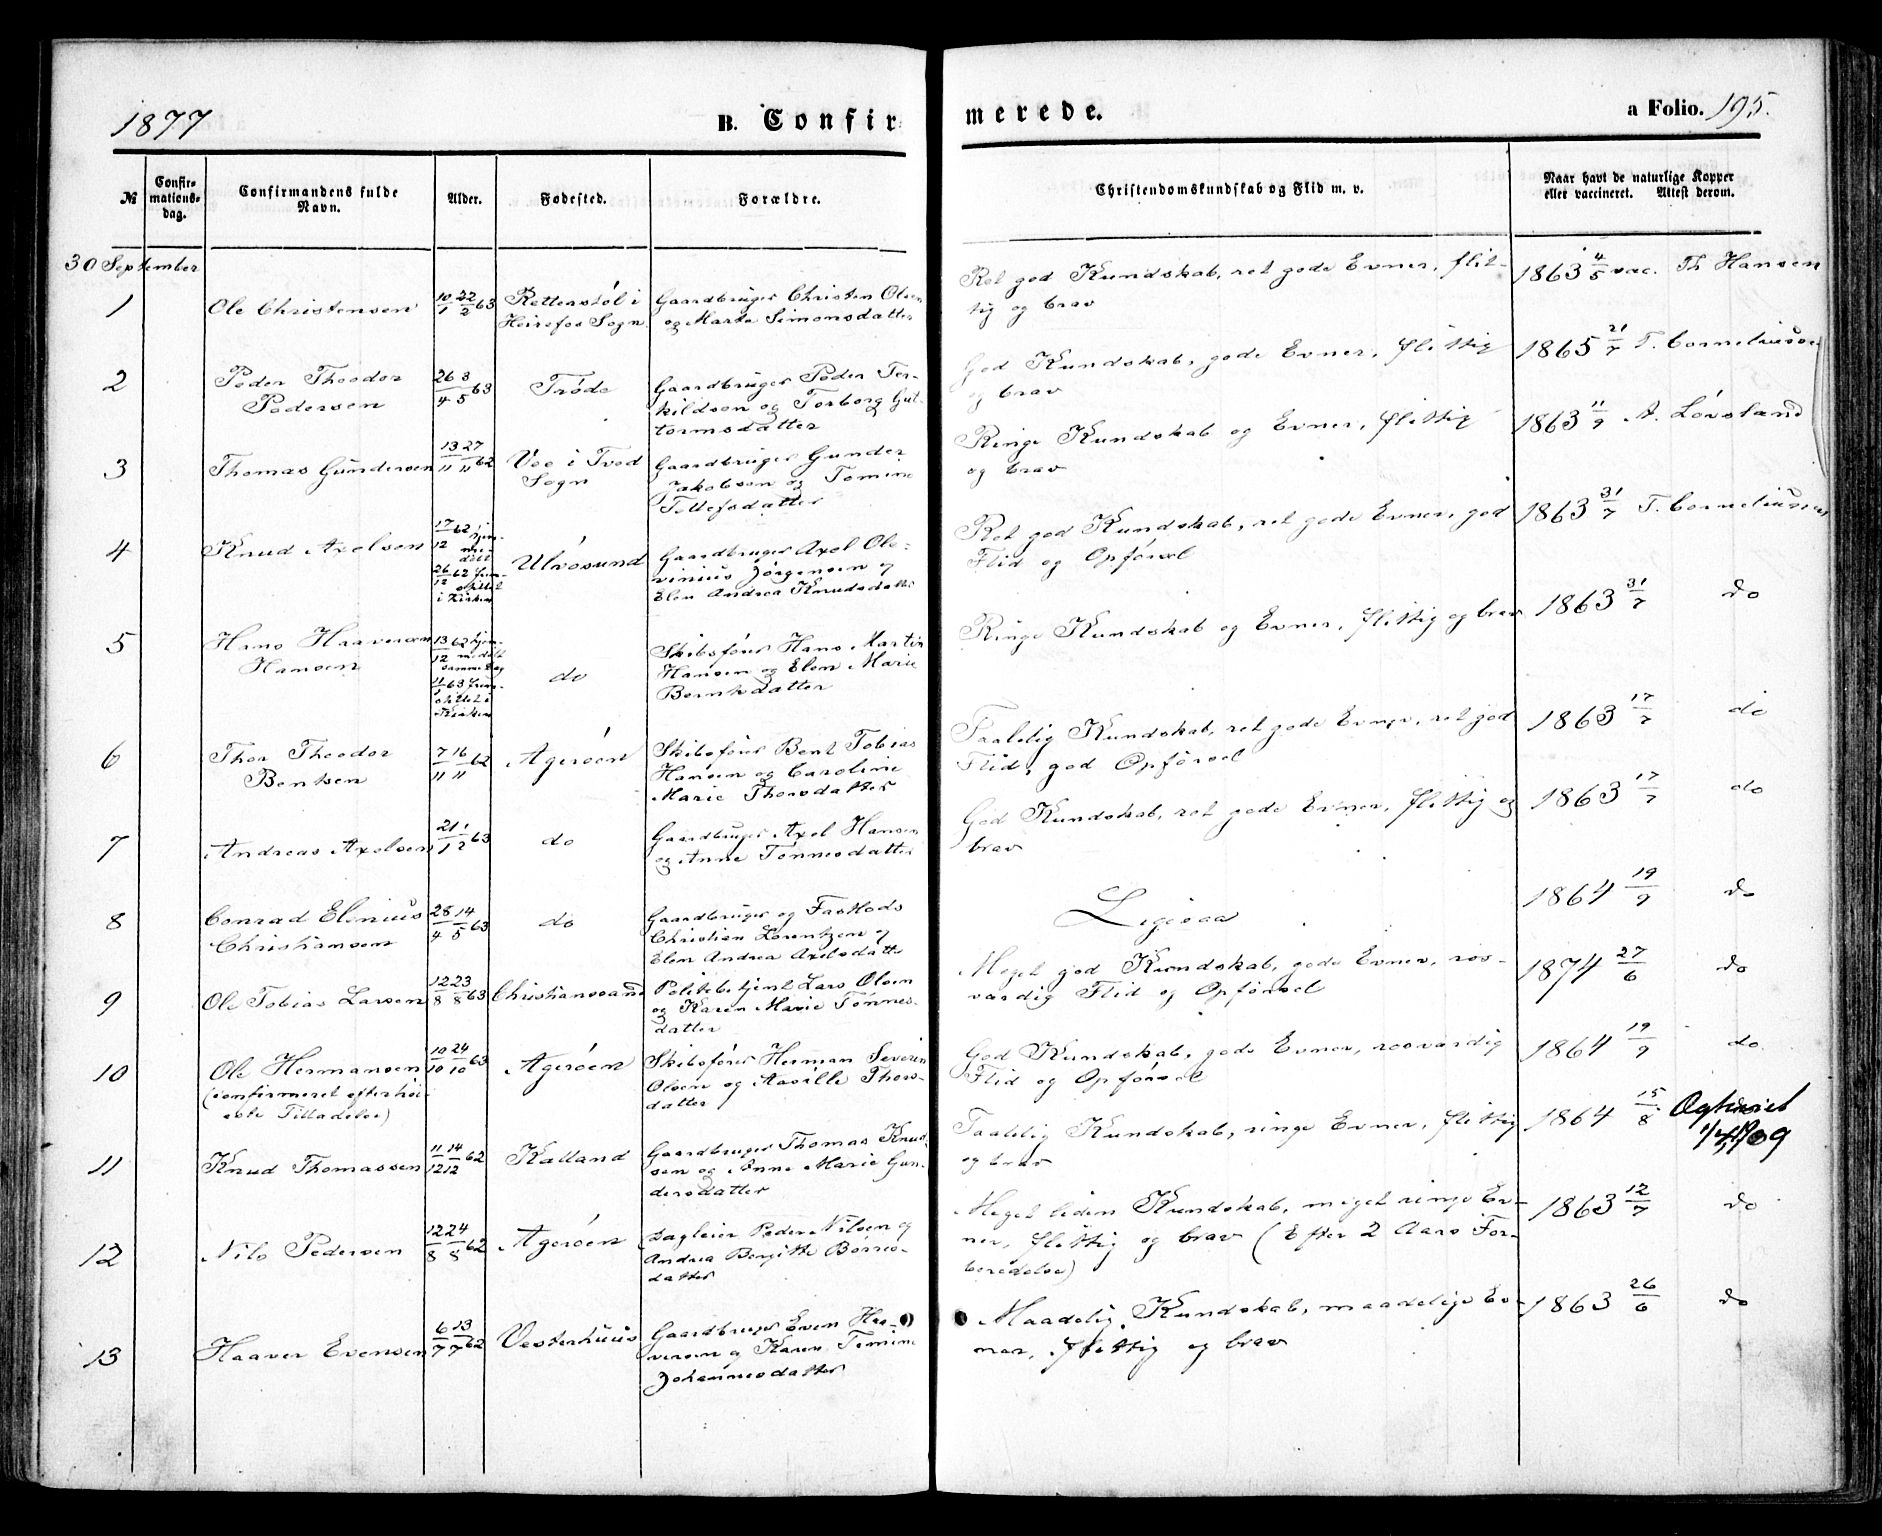 1877
B. Confirmerede.
a Folio. 195.
№
Confir-
mations-
dag.
Confirmandens fulde
Navn.
Alder.
Fødested.
Forældre.
Christendomskundskab og Flid m. v.
Naar havt de naturlige Kopper
eller vaccineret. Attest derom.
30 September
1 Ole Christensen 10/1 22/2 63 Retterstøl i Gaardbruger Christen Olsen
Heirefos Sogn og Marte Simonsdatter
Ret god Kundskab, ret gode Evner, flit-
tig og brav
1863 4/5 vac. Th Hansen
2 Peder Theodor 26/4 3/5 63 Trøde Gaardbruger Peder Ter-
Pedersen kildsen og Torborg Gut-
tormsdatter
God Kundskab, gode Evner, flittig
og brav
1865 21/7 T. Corneliusen
3 Thomas Gundersen 13/11 27/11 62 Voe i Tved Gaardbruger Gunder
Sogn Jakobsen og Tomine
Tellefsdatter
Ringe Kundskab og Evner, flittig
og brav
1863 11/9 A. Løvsland
4 Knud Axelsen 17/12 62 hjem-
medøbt
26/12 62 frem-
stillet
i Kirken
Ulvøsund Gaardbruger Axel Ole-
vinius Jørgensen og
Elen Andrea Knudsdatter
Ret god Kundskab, ret gode Evner, god
Flid og Opførsel
1863 31/7 T. Corneliusen
5 Hans Haaversen 13/12 62 hjem-
Hansen medøbt
samme Dag
11/1 63 frem-
stillet i
Kirken
do Skibsfører Hans Martin
Hansen og Elen Marie
Berntsdatter
Ringe Kundskab og Evner, flittig og brav
1863 31/7 do
6 Thor Theodor 7/11 16/11 62 Agerøen Skibsfører Bent Tobias
Bentsen Hansen og Caroline
Marie Thorsdatter
Taalelig Kundskab, ret gode Evner, ret god
Flid, god Opførsel
1863 17/7 do
7 Andreas Axelsen 21/1 1/2 63 do Gaardbruger Axel Hansen
og Anne Tønnesdatter
God Kundskab, ret gode Evner, flittig og
brav
1863 17/7 do
8 Conrad Elenius 28/4 14/5 63 do Gaardbruger og Fastlods
Christiansen Christian Lorentzen og
Elen Andrea Axelsdatter
Ligesaa
1864 19/9 do
9 Ole Tobias Larsen 12/8 23/8 63 Christianssand Politibetjent Lars Olsen
og Karen Marie Tønnes-
datter
Meget god Kundskab, gode Evner, ros-
værdig Flid og Opførsel
1874 27/6 do
10 Ole Hermansen 10/10 24/10 63 Agerøen Skibsfører Herman Severin
(confirmeret efter høi- Olsen og Aasille Thors-
este Tilladelse) datter
God Kundskab, gode Evner, rosværdig
Flid og Opførsel
1864 19/9 do
11 Knud Thomassen 11/12 14/12 62 Kalland Gaardbruger Thomas Knud-
sen og Anne Marie Gun-
dersdatter
Taalelig Kundskab, ringe Evner, flittig
og brav
1864 15/8
12 Nils Pedersen 12/8 24/8 62 Agerøen Dagleier Peder Nilsen og
Andrea Bergitte Børres-
datter
Meget liden Kundskab, meget ringe Ev-
ner, flittig og brav (Efter 2 Aars For-
beredelse)
1863 12/7 do
13 Haaver Evensen 6/7 13/7 62 Vesterhuus Gaardbruger Even Haa-
versen og Karen Temine
Johannesdatter
Maadelig Kundskab, maadelige Ev-
ner, flittig og brav
1863 26/6 do